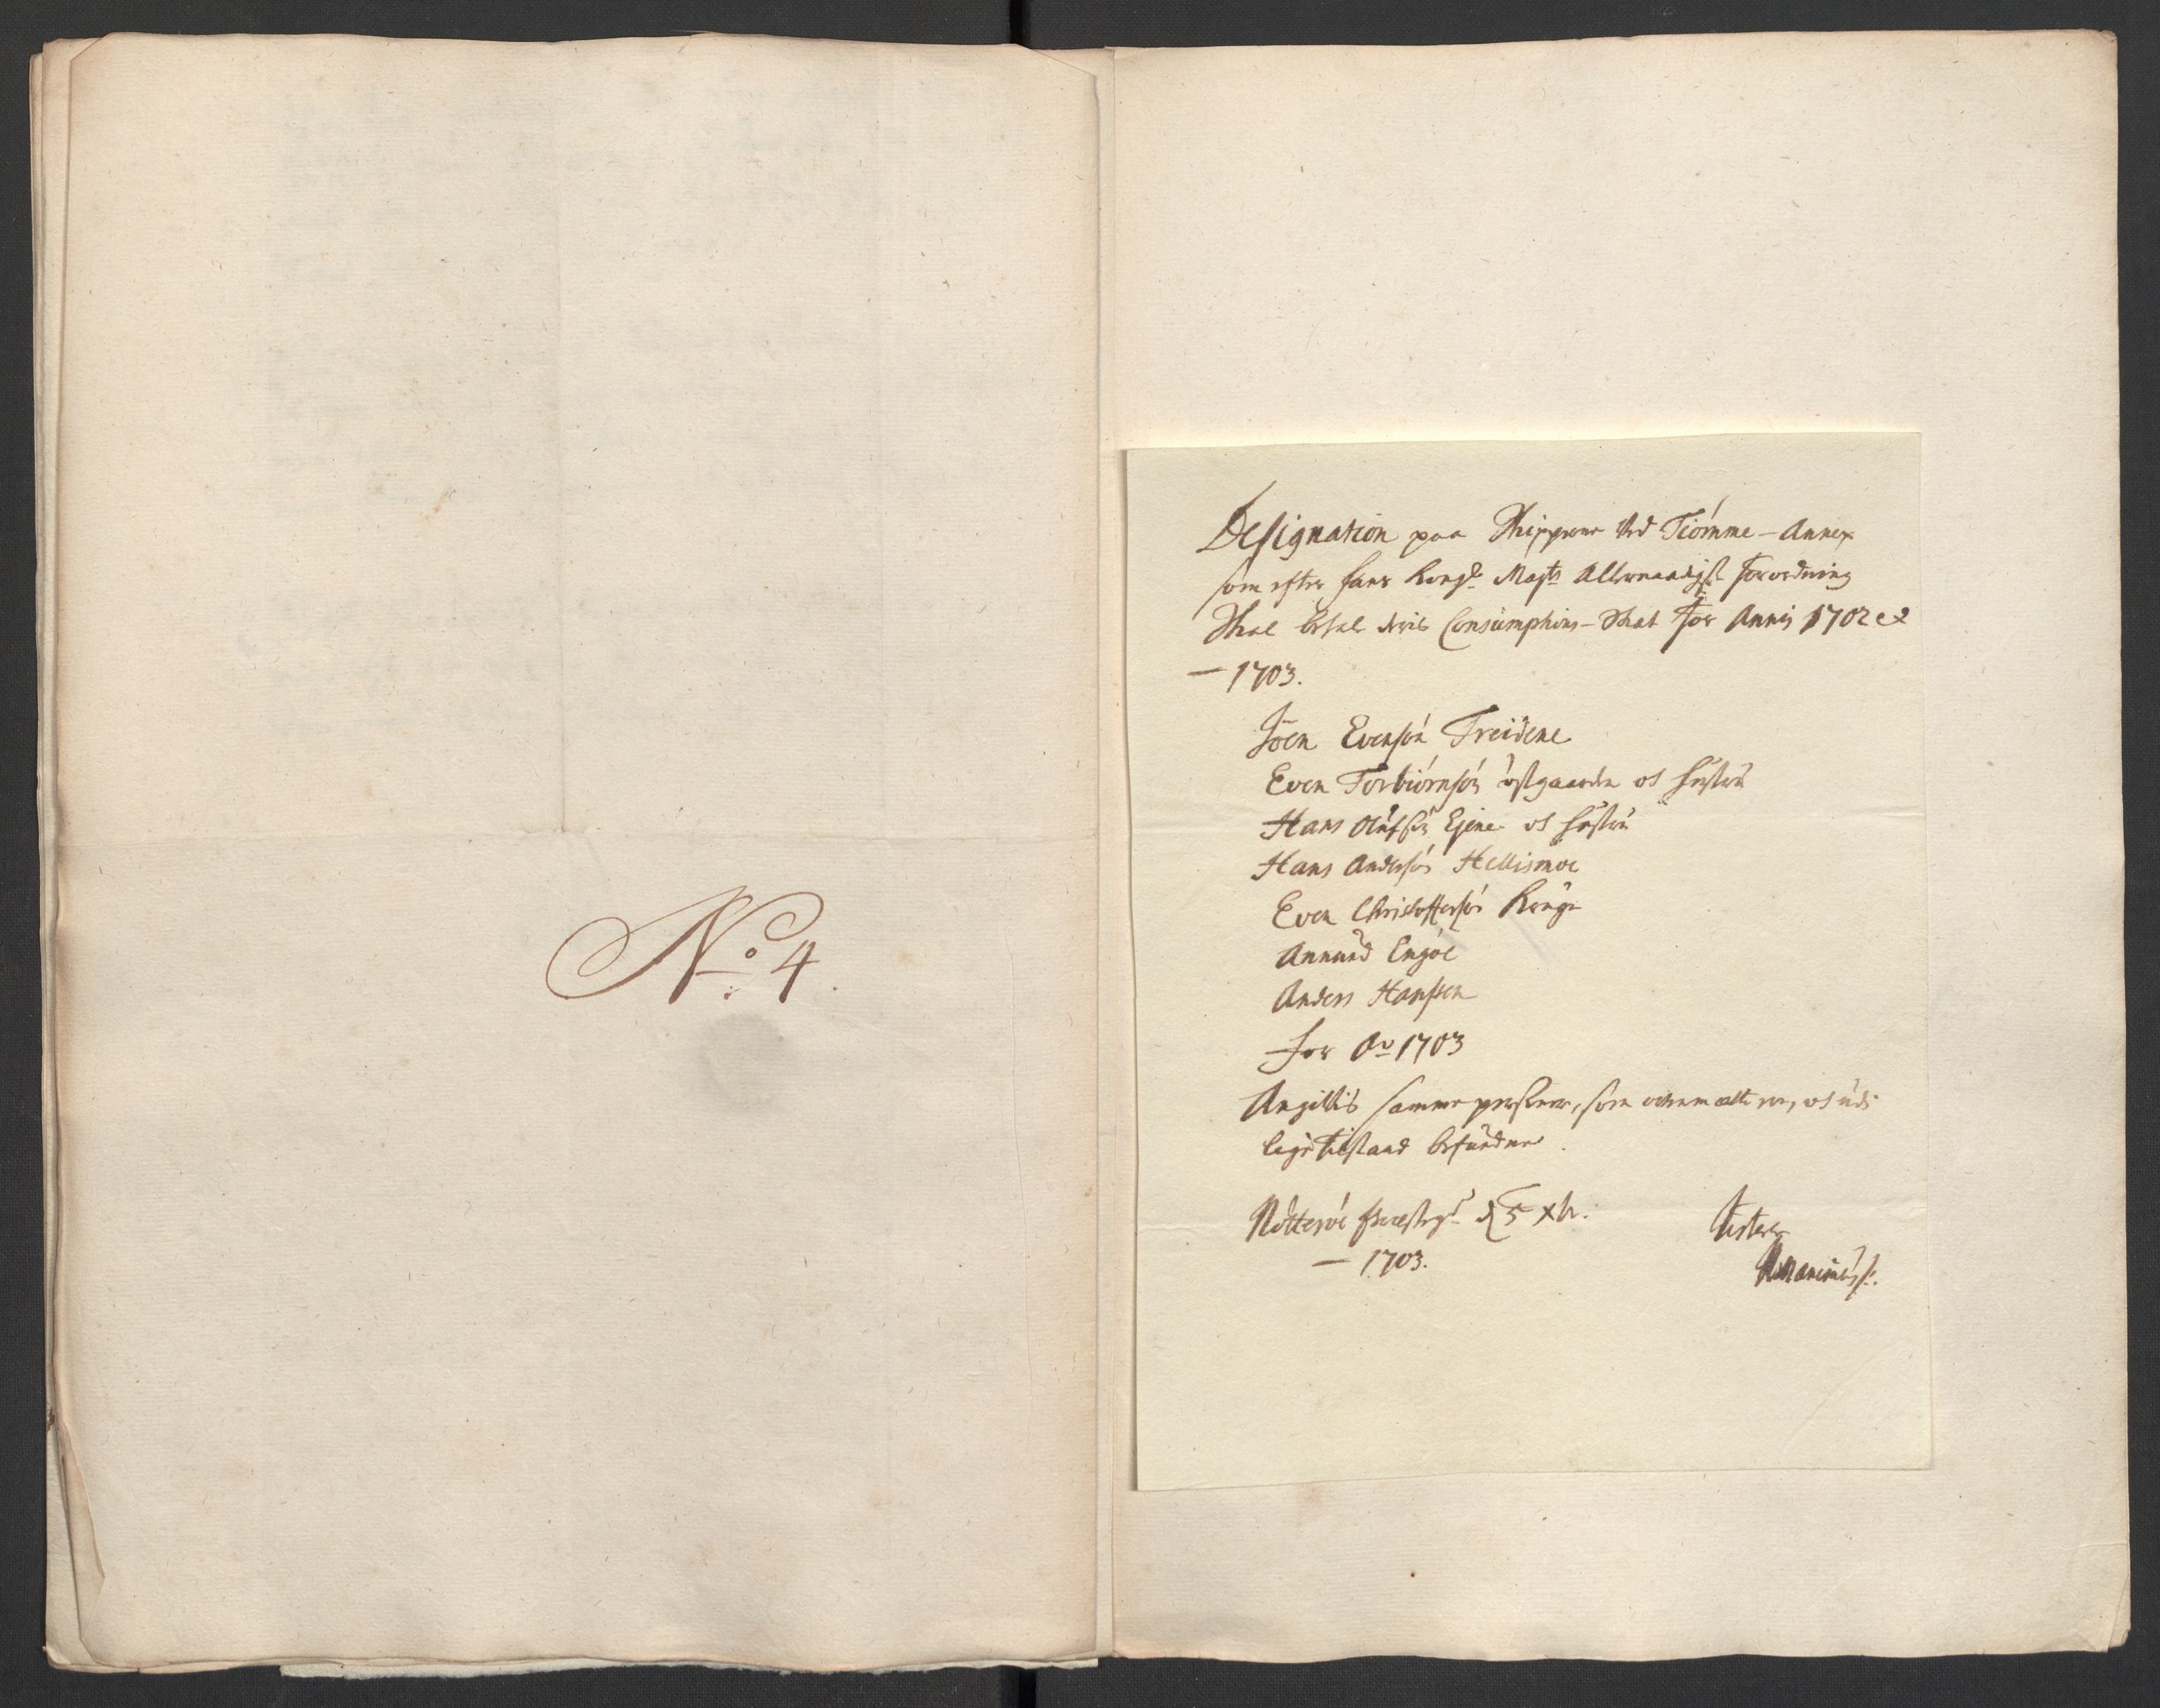 No 4.
Designation paa Skipperne Ved Tiømme - Annex
som efter hans Kongl. Mayts Allernaadigste forordning
Skal betale deris Consumptions - Skat for Annis 1702 et
— 1703.
Joen Evensøn Treidene
Even Torbiørnsøn østgaarden og hustru
Hans Olufsøn Ejene og hustru
Hans Andersøn Hellismoe
Even Christoffersøn
Annund Engøe
Anders Hanssen
for Ao 1703
Angifvis samme personer, som udi
lige tilstand befundne.
Nøtterøe d 5 xbr.
— 1703.
testerer